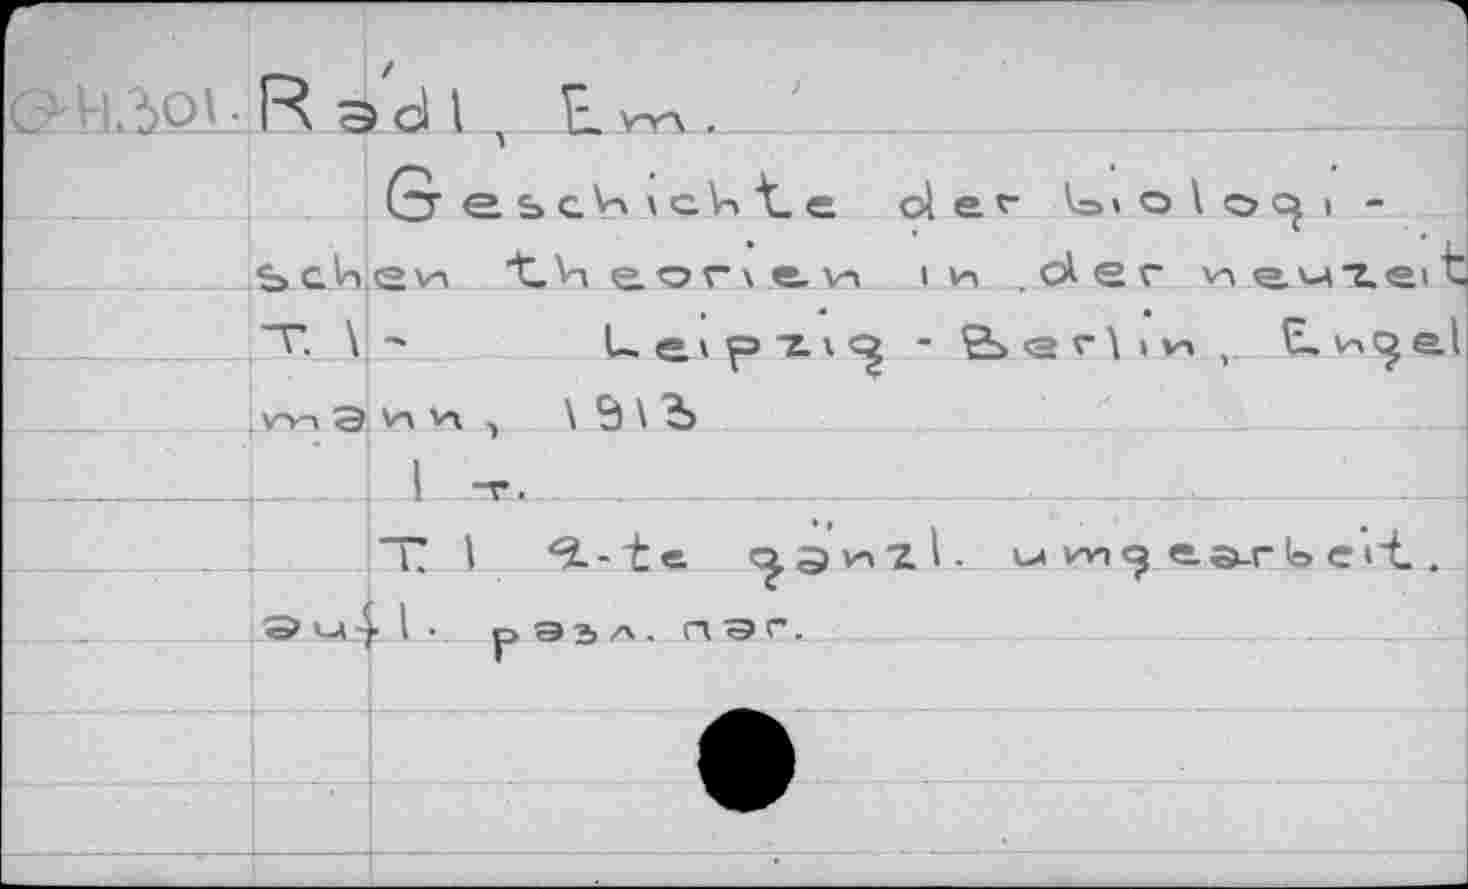 Rádl, Em.
Geschichte der biologi-
schen theorien in der neuzeit
T. 1- Leipzig - Berlin, Engel
mann, 1913
1 т.
T. 1 2-te gänzl. umgearbeit.
aufl. разл. паг.